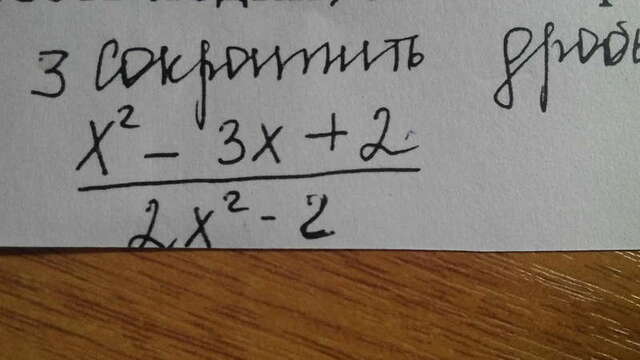 3 Сократить дробь
x² - 3x + 2
2x² - 2